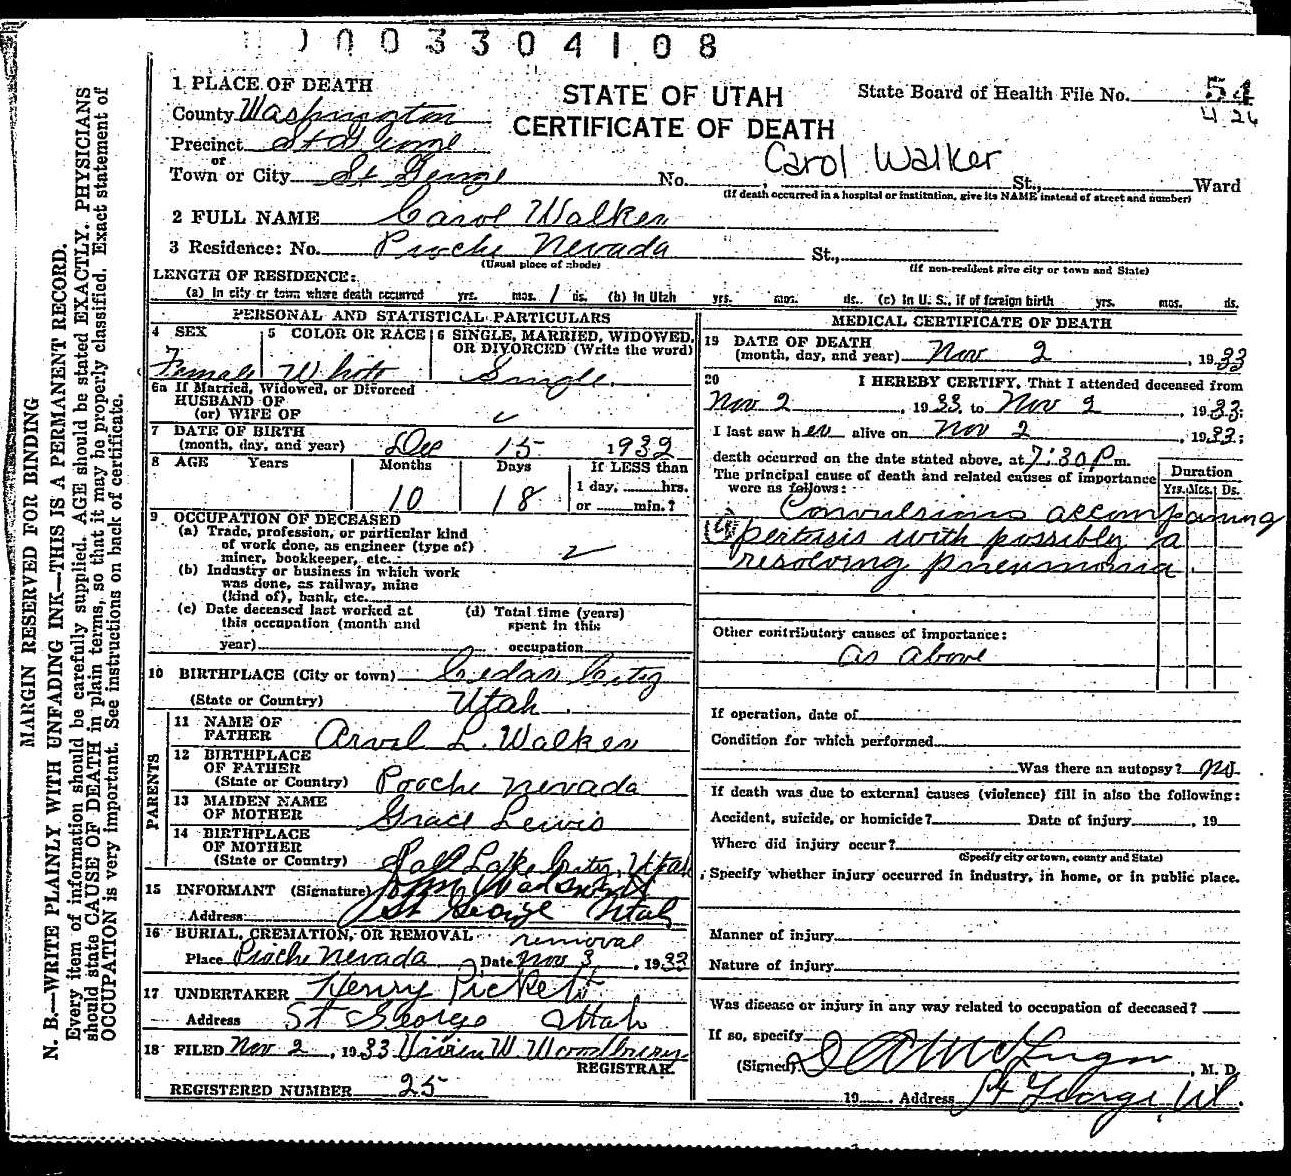 0003304108
1 PLACE OF DEATH
STATE OF UTAH
CERTIFICATE OF DEATH
State Board of Health File No. 54
County Washington
Precinct St George
or
Town or City St George No. St., Ward
Carol Walker
(If death occurred in a hospital or institution, give its NAME instead of street and number)
2 FULL NAME Carol Walker
3 Residence: No. Pioche Nevada St.,
(Usual place of abode) (If non-resident give city or town and State)
LENGTH OF RESIDENCE:
(a) In city or town where death occurred yrs. mos. 1 ds. (b) In Utah yrs. mos. ds. (c) In U. S., if of foreign birth yrs. mos. ds.
PERSONAL AND STATISTICAL PARTICULARS
4 SEX 5 COLOR OR RACE 6 SINGLE, MARRIED, WIDOWED, OR DIVORCED (Write the word)
Female White Single
6a If Married, Widowed, or Divorced
HUSBAND OF
(or) WIFE OF
7 DATE OF BIRTH
(month, day, and year) Dec 15 1932
8 AGE Years Months Days If LESS than
10 18 1 day, hrs.
or min.?
9 OCCUPATION OF DECEASED
(a) Trade, profession, or particular kind
of work done, as engineer (type of)
miner, bookkeeper, etc.
(b) Industry or business in which work
was done, as railway, mine
(kind of), bank, etc.
(c) Date deceased last worked at (d) Total time (years)
this occupation (month and spent in this
year) occupation
10 BIRTHPLACE (City or town) Cedar City
(State or Country) Utah
PARENTS
11 NAME OF
FATHER Arvil L. Walker
12 BIRTHPLACE
OF FATHER
(State or Country) Pioche Nevada
13 MAIDEN NAME
OF MOTHER Grace Lewis
14 BIRTHPLACE
OF MOTHER
(State or Country) Salt Lake City, Utah
15 INFORMANT (Signature) John
Address St George Utah
16 BURIAL, CREMATION, OR REMOVAL removal
Place Pioche Nevada Date Nov 3, 1933
17 UNDERTAKER Henry Pickett
Address St George Utah
18 FILED Nov 2, 1933 W Woodbury
REGISTRAR
REGISTERED NUMBER 25
MEDICAL CERTIFICATE OF DEATH
19 DATE OF DEATH
(month, day, and year) Nov 2, 1933
20 I HEREBY CERTIFY, That I attended deceased from
Nov 2, 1933 to Nov 2, 1933;
I last saw her alive on Nov 2, 1933;
death occurred on the date stated above, at 7:30 P m.
The principal cause of death and related causes of importance
were as follows:
Duration
Yrs. Mos. Ds.
Convulsions accompaning
pertusis with possibly a
resolving pneumonia.
Other contributory causes of importance:
As above
If operation, date of
Condition for which performed
Was there an autopsy? no
If death was due to external causes (violence) fill in also the following:
Accident, suicide, or homicide? Date of injury, 19
Where did injury occur?
(Specify city or town, county and State)
Specify whether injury occurred in industry, in home, or in public place.
Manner of injury
Nature of injury
Was disease or injury in any way related to occupation of deceased?
If so, specify
(Signed), M. D.
19 Address St George, Ut.
MARGIN RESERVED FOR BINDING
N. B.—WRITE PLAINLY WITH UNFADING INK—THIS IS A PERMANENT RECORD.
Every item of information should be carefully supplied. AGE should be stated EXACTLY. PHYSICIANS
should state CAUSE OF DEATH in plain terms, so that it may be properly classified. Exact statement of
OCCUPATION is very important. See instructions on back of certificate.